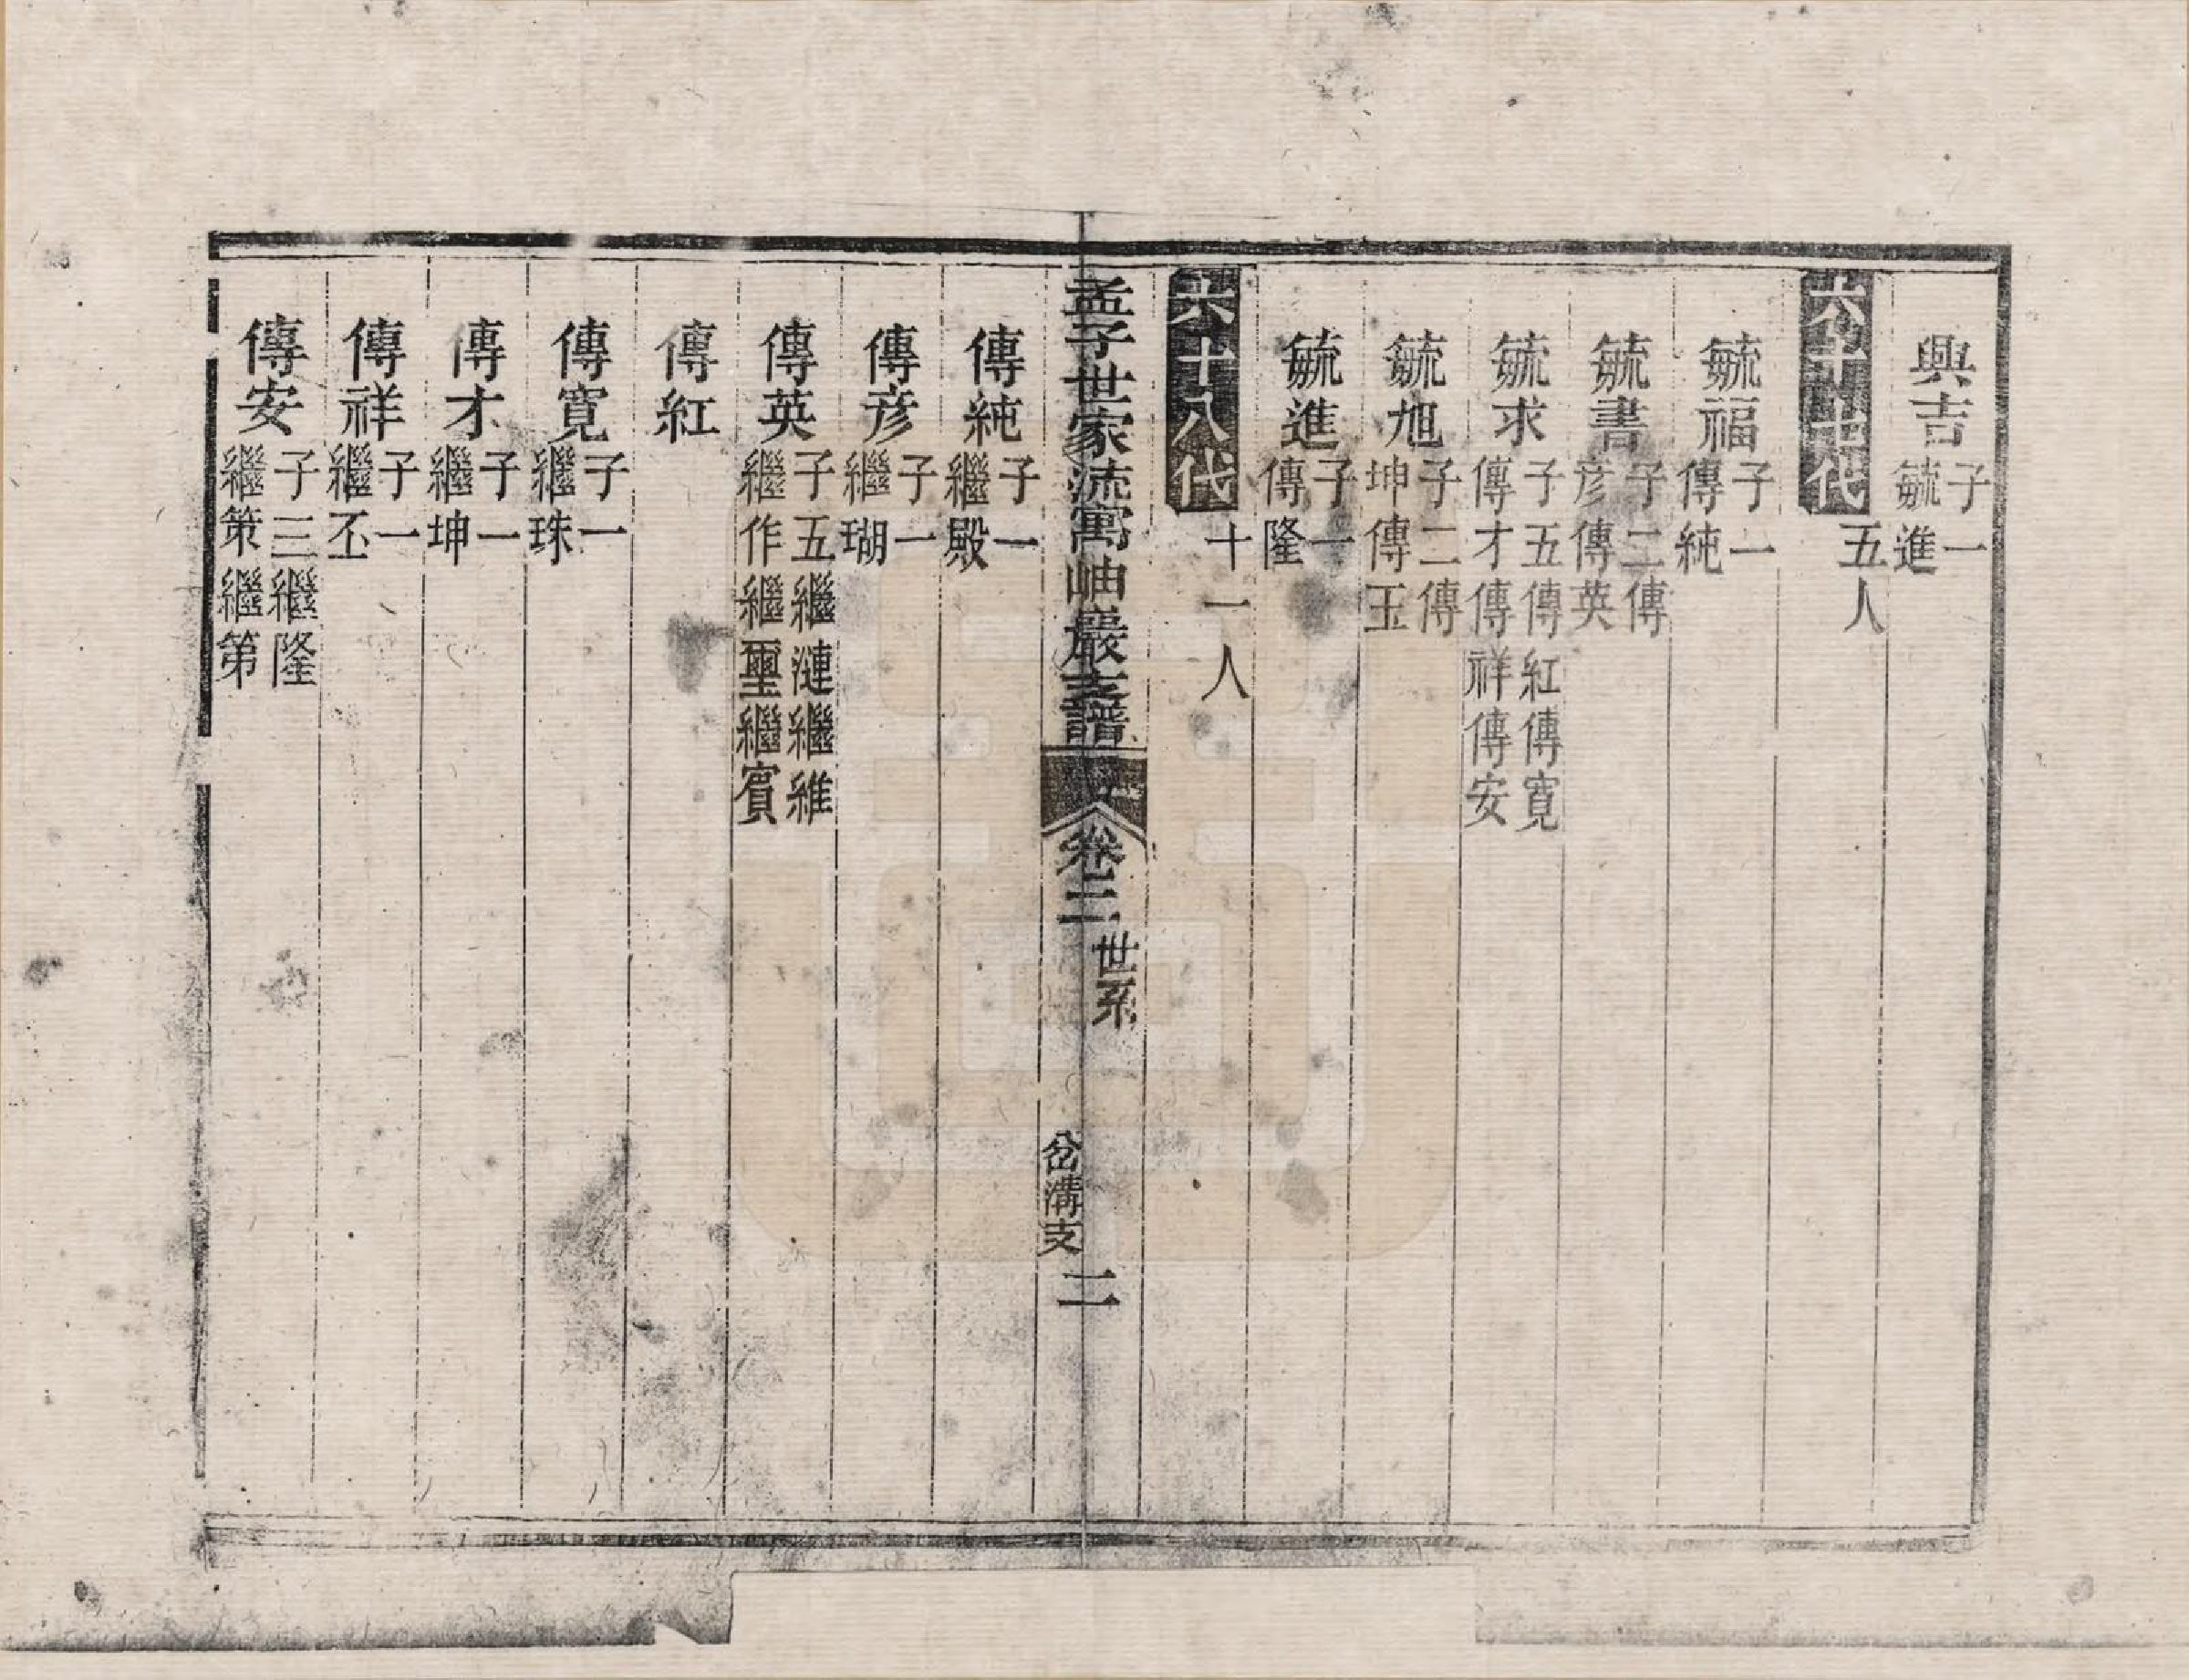 興吉子一毓進
六十七代五人
毓福子一傳純
毓書子二傳彦傳英
毓求子五傳紅傳寬傳才傳祥傳安
毓旭子二傳坤傳玉
毓進子一傳隆
六十八代十一人
孟子世家流寓岫巖支譜 卷二 世系 岔溝支 二
傳純子一繼殿
傳彦子一繼瑚
傳英子五繼漣繼維繼作繼璽繼賓
傳紅
傳寬子一繼珠
傳才子一繼坤
傳祥子一繼丕
傳安子三繼隆繼策繼第